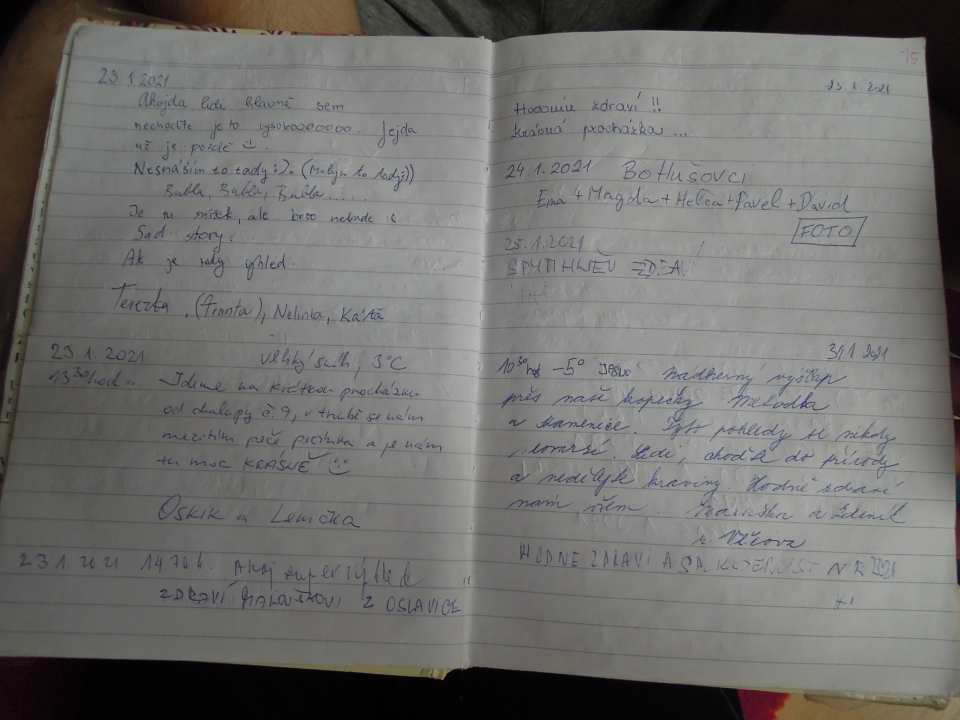 23.1.2021
Ahojda lidi hlavně sem
nechoďte je to vysokoooooooo. Jejda
už je pozdě
Nesnáším to tady :). (Miluju to tady :))
Bubla, Bubla, Bubla.....
Je tu snížek, ale brzo nebude :(
Sad story.
Ak je taky výhled.
Terezka, (Franta), Nelinka, Kátá
23.1.2021 velký 3°C
13 30 hod... Jdeme na krátkou procházku
od chalupy č. 9, v troubě se nám
mezitím peče pečínka a je nám
tu moc KRÁSNĚ
Oskik a Lenička
23.1.2021 14 h. Ahoj super výhled
ZDRAVÍ Z OSLAVICE
15
23.1.2021
Hodoměř zdraví !!
krásná procházka...
24.1.2021 BOHUŠOVCI
Ema + Magda + Helča + Pavel + David
FOTO
25.1.2021
SPYTIHNĚV
31.1.2021
10 30 hod -5° Jasno nádherný výšlap
přes naše kopečky
a Kamenice. Tyto pohledy se nikdy
neomrzí. Lidi, choďte do přírody
a nedělejte kraviny. Hodně zdraví
nám všem. Maruška a Zdeněk
z Vlčova
HODNE ZDRAVI A